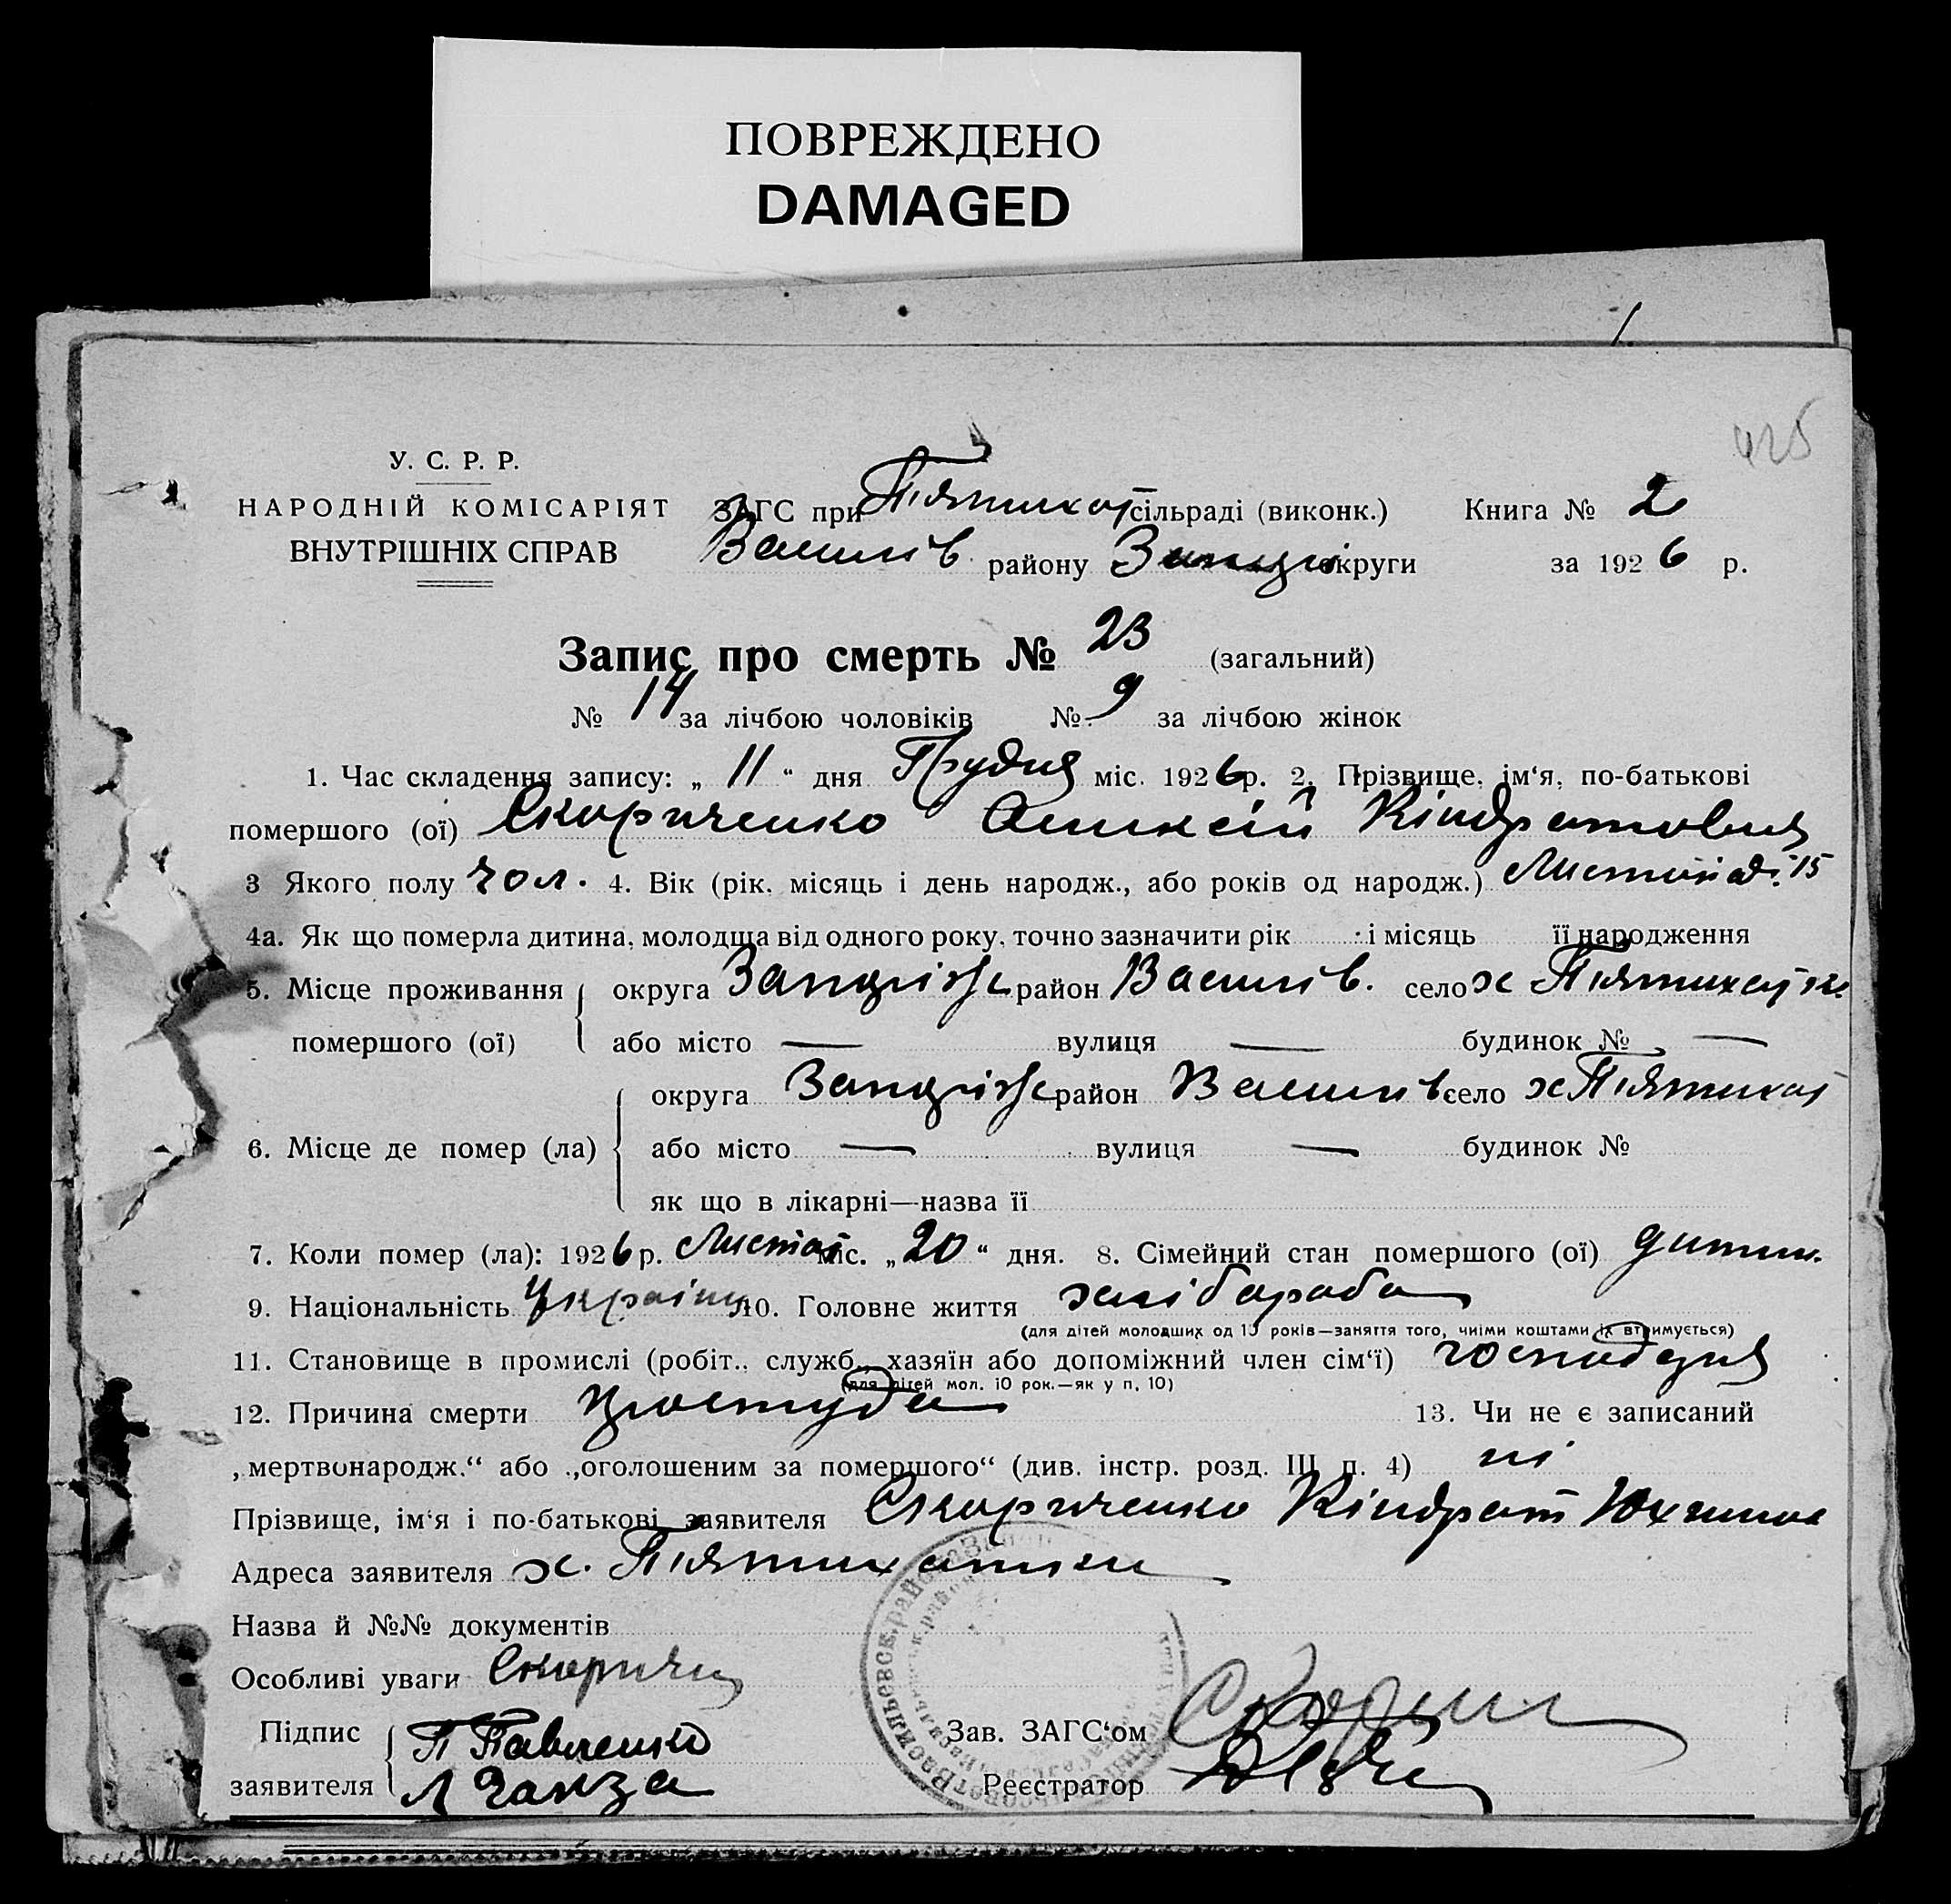 ПОВРЕЖДЕНО
DAMAGED
425
У. С. Р. Р.
НАРОДНІЙ КОМІСАРІЯТ
ВНУТРІШНІХ СПРАВ
ЗАГС при П'ятихат сільраді (виконк.) Книга № 2
Василів району Запоріж округи за 1926 р.
Запис про смерть № 23 (загальний)
№ 14 за лічбою чоловіків № 9 за лічбою жінок
1. Час складення запису: „ 11 “ дня Грудня міс. 1926 р. 2. Прізвище, ім‘я, по-батькові
помершого (ої) Скориченко Олексій Кіндратович
3 Якого полу чол. 4. Вік (рік. місяць і день народж., або років од народж.) Листопад. 15
4а. Як що померла дитина, молодша від одного року, точно зазначити рік і місяць її народження
5. Місце проживання помершого (ої) округа Запоріж район Василів. село х П'ятихатк.
або місто — вулиця — будинок № —
6. Місце де помер (ла) округа Запоріж район Василів село х П'ятихат
або місто — вулиця — будинок №
як що в лікарні—назва її
7. Коли помер (ла): 1926 р. Листоп міс. „ 20 “ дня. 8. Сімейний стан помершого (ої) дитин.
9. Національність Україн 10. Головне життя хлібороба
(для дітей молодших од 10 років—заняття того, чиїми коштами їх втримується)
11. Становище в промислі (робіт., служб., хазяїн або допоміжний член сім‘ї) господаря
(для дітей мол. 10 рок.—як у п. 10)
12. Причина смерти простуда 13. Чи не є записаний
„мертвонародж.“ або „оголошеним за помершого“ (див. інстр. розд. III п. 4) ні
Прізвище, ім‘я і по-батькові заявителя Скориченко Кіндрат Юхимов
Адреса заявителя х. П'ятихатки
Назва й №№ документів
Особливі уваги
Підпис заявителя П Павленко
Зав. ЗАГС‘ом
Реєстратор